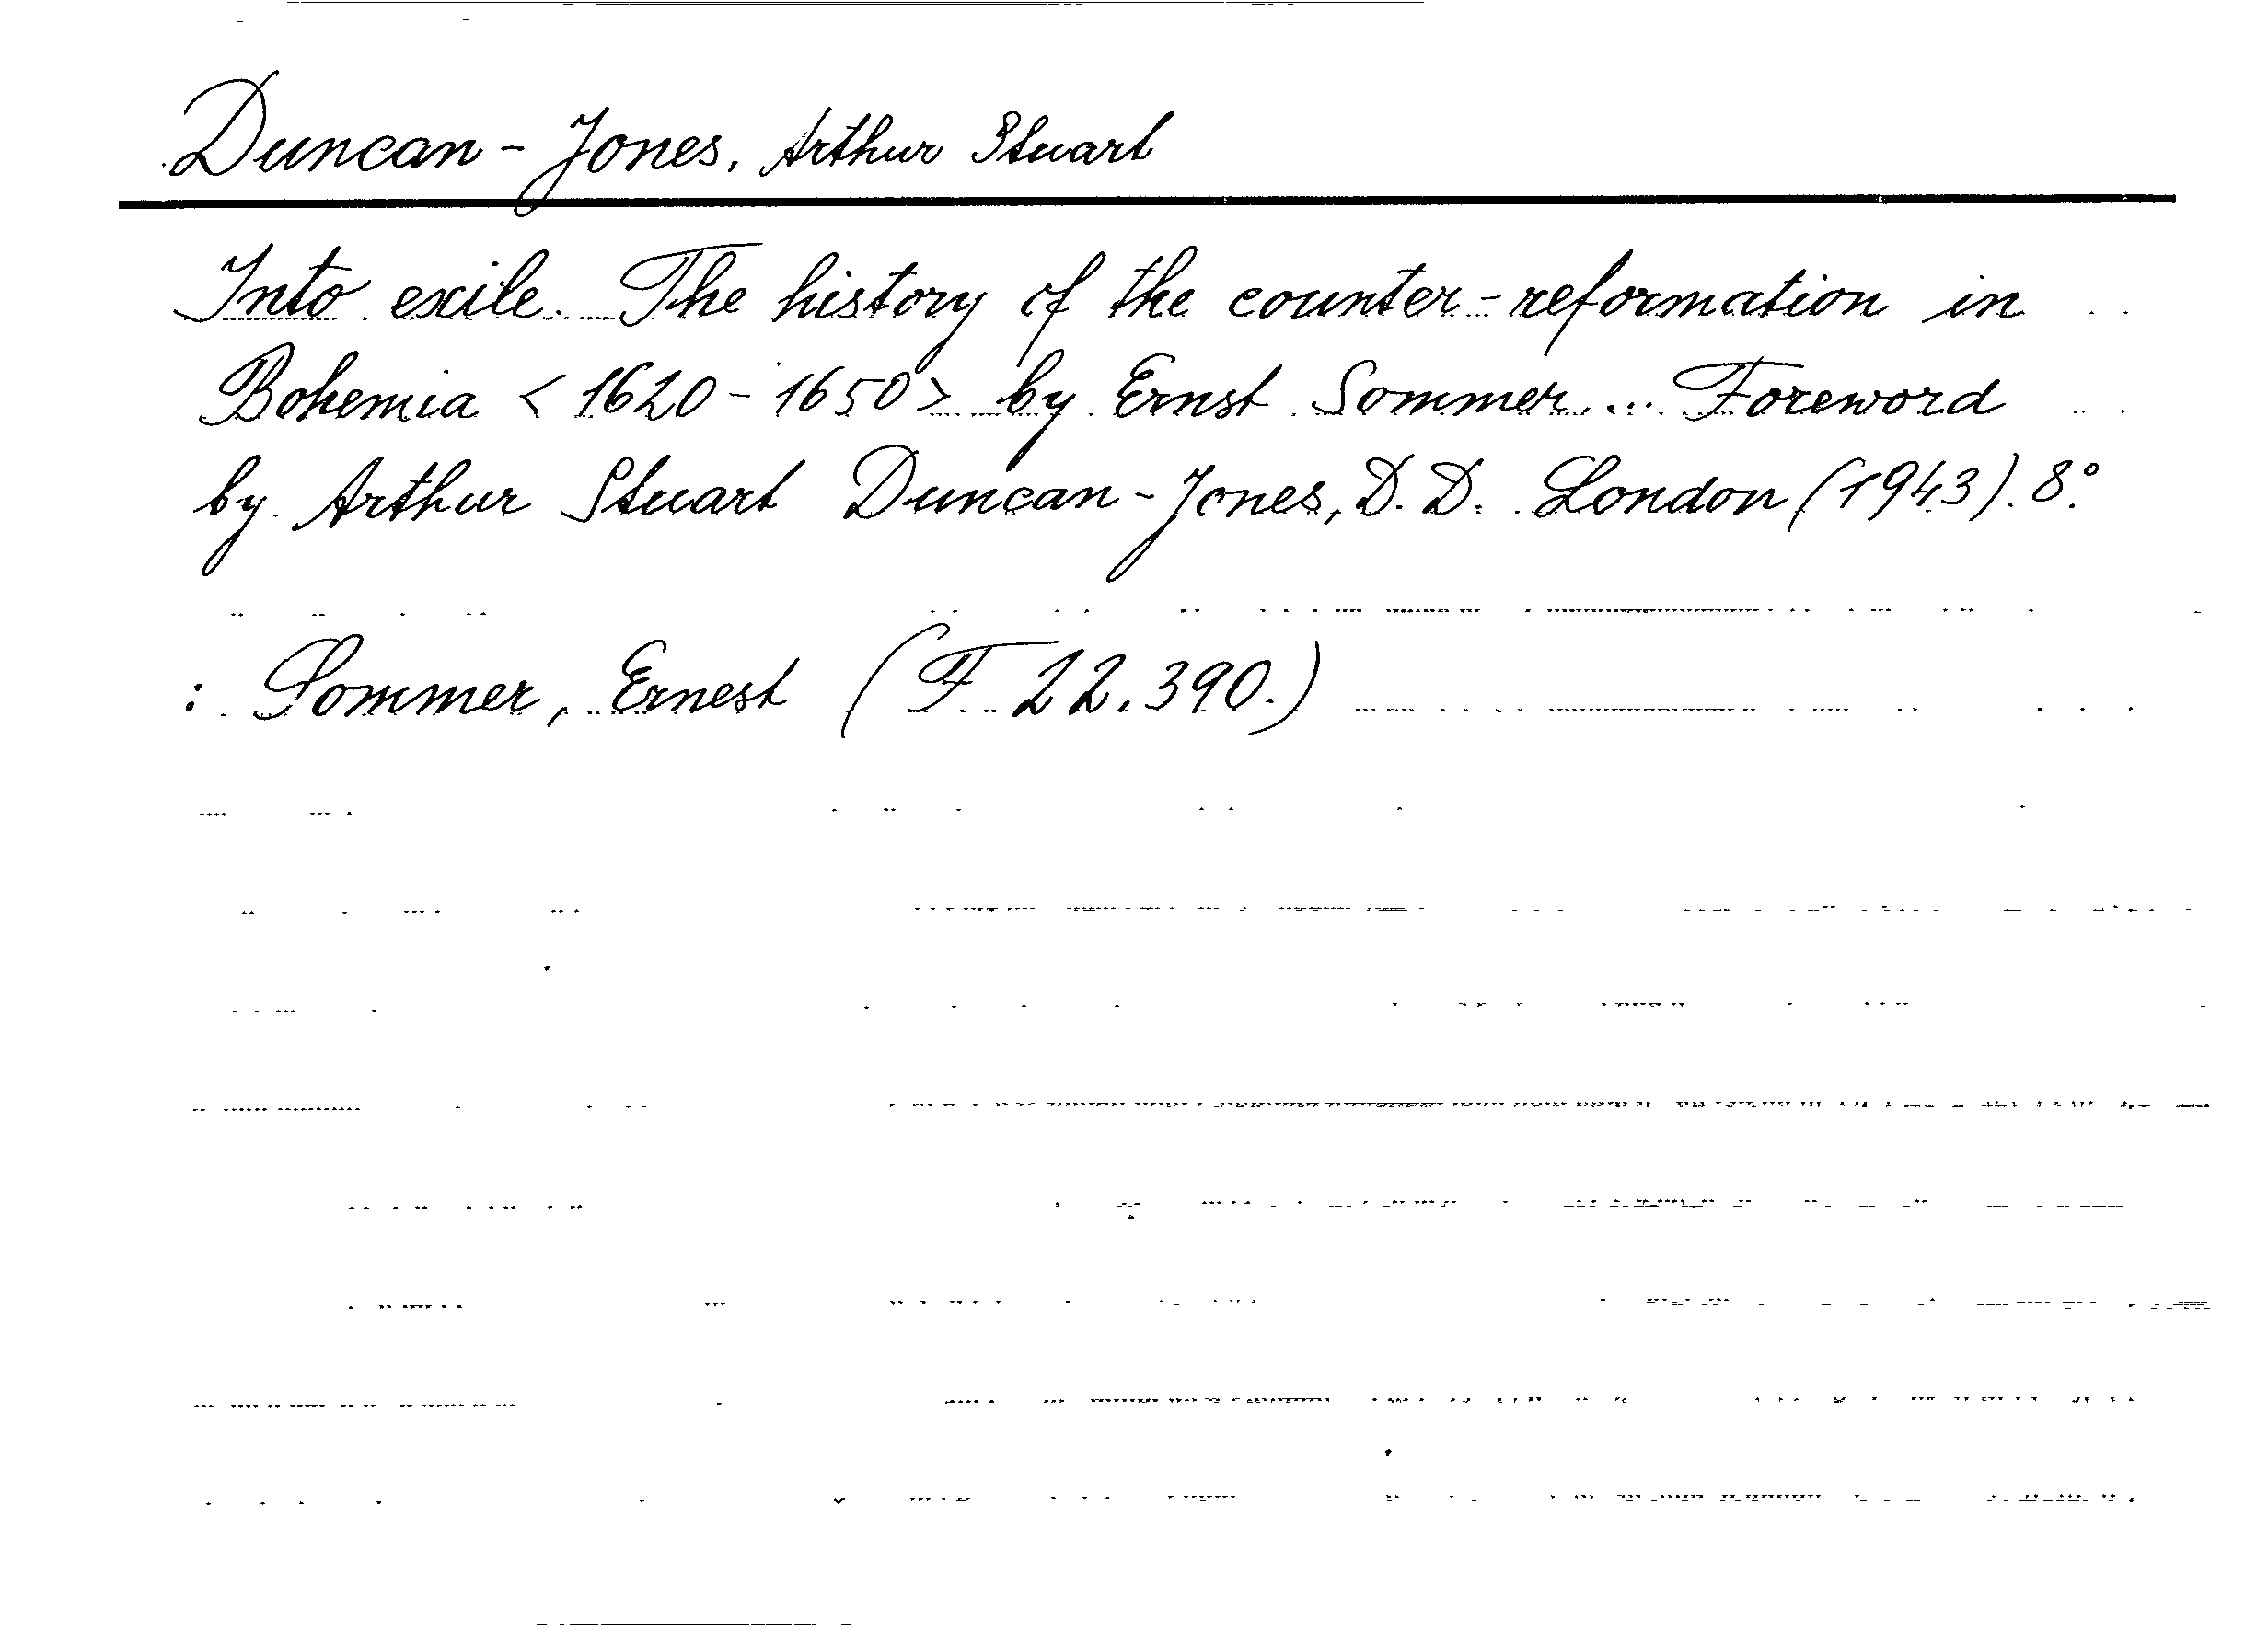 Duncan-Jones, Arthur Stuart
Into exile. The history of the counter-reformation in
Bohemia <1620-1650> by Ernst Sommer ... Foreword
by Arthur Stuart Duncan-Jones, D.D. London (1943). 8°.
: Sommer, Ernest (F 22.390.)